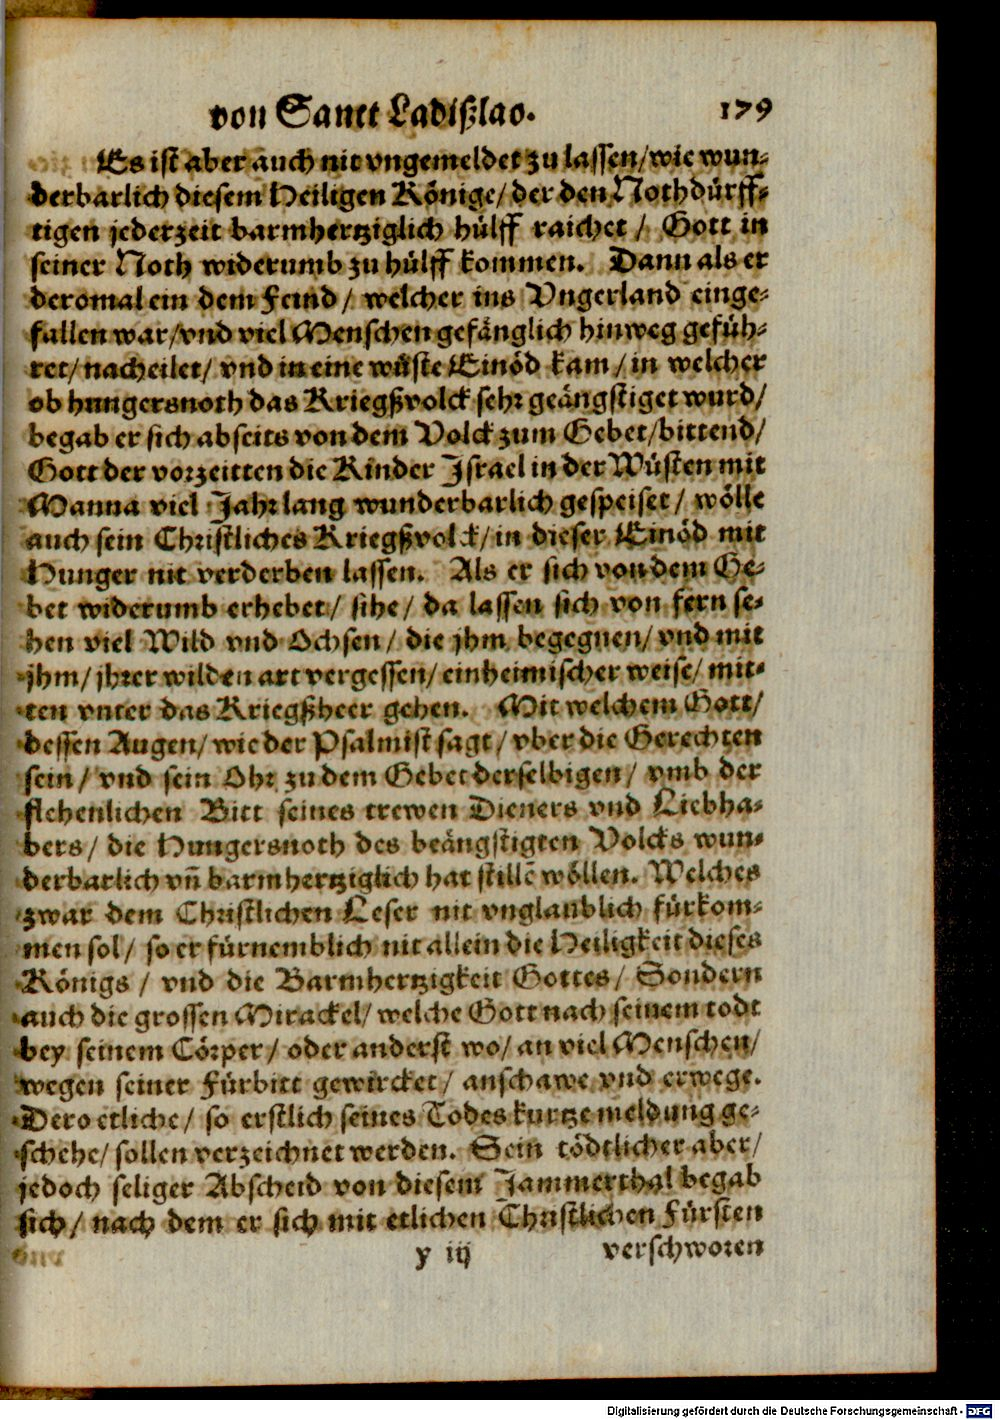 von Sanct Ladißlao. 179
Es ist aber auch nit vngemeldet zu lassen/ wie wun-
derbarlich diesem Heiligen Könige/ der den Nothdürff-
tigen jederzeit barmhertziglich hülff raichet/ Gott in
seiner Noth widerumb zu hülff kommen. Dann als er
deromal ein dem Feind/ welcher ins Vngerland einge-
fallen war/ vnd viel Menschen gefänglich hinweg gefüh-
ret/ nacheilet/ vnd in eine wüste Einöd kam/ in welcher
ob hungersnoth das Kriegßvolck sehr geängstiget wurd/
begab er sich abseits von dem Volck zum Gebet/ bittend/
Gott der vorzeitten die Kinder Israel in der Wüsten mit
Manna viel Jahr lang wunderbarlich gespeiset/ wölle
auch sein Christliches Kriegßvolck/ in dieser Einöd mit
Hunger nit verderben lassen. Als er sich von dem Ge-
bet widerumb erhebet/ sihe/ da lassen sich von fern se-
hen viel Wild vnd Ochsen/ die jhm begegnen/ vnd mit
jhm/ jhrer wilden art vergessen/ einheimischer weise/ mit-
ten vnter das Kriegßheer gehen. Mit welchem Gott/
dessen Augen/ wie der Psalmist sagt/ vber die Gerechten
sein/ vnd sein Ohr zu dem Gebet derselbigen/ vmb der
flehenlichen Bitt seines trewen Dieners vnd Liebha-
bers/ die Hungersnoth des beängstigten Volcks wun-
derbarlich vñ barmhertziglich hat stillẽ wöllen. Welches
zwar dem Christlichen Leser nit vnglaublich fürkom-
men sol/ so er fürnemblich nit allein die Heiligkeit dieses
Königs/ vnd die Barmhertzigkeit Gottes/ Sondern
auch die grossen Mirackel/ welche Gott nach seinem todt
bey seinem Cörper/ oder anderst wo/ an viel Menschen/
wegen seiner Fürbitt gewircket/ anschawe vnd erwege.
Dero etliche/ so erstlich seines Todes kurtze meldung ge-
schehe/ sollen verzeichnet werden. Sein tödtlicher aber/
jedoch seliger Abscheid von diesem Jammerthal begab
sich/ nach dem er sich mit etlichen Christlichen Fürsten
y iij verschworen
Digitalisierung gefördert durch die Deutsche Forschungsgemeinschaft - DFG